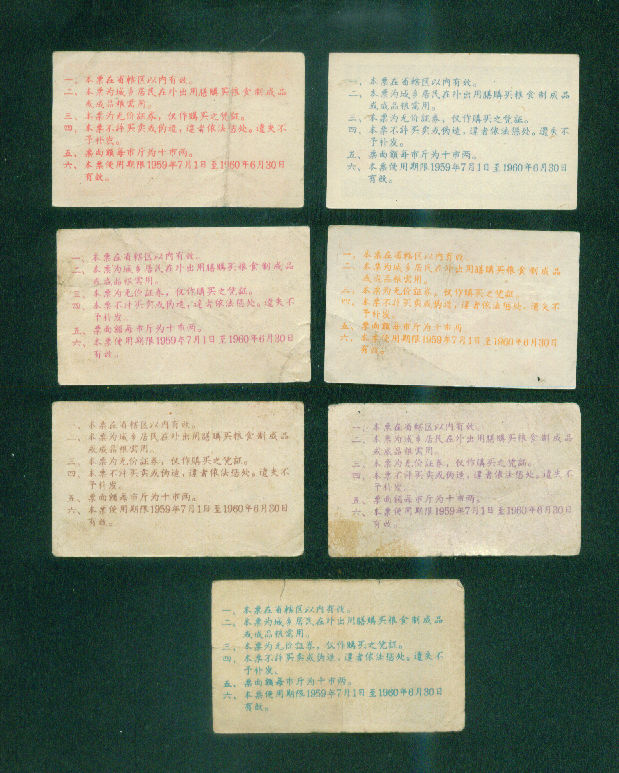 一、本票在省辖区以内有效。
二、本票为城乡居民在外出用膳购买粮食制成品
或成品粮需用。
三、本票为无价証券，仅作购买之凭証。
四、本票不許买卖或伪造，違者依法惩处。遺失不
予补发。
五、票面額每市斤为十市两。
六、本票使用期限1959年7月1日至1960年6月30日
有效。
一、本票在省辖区以内有效。
二、本票为城乡居民在外出用膳購买粮食制成品
或成品粮需用。
三、本票为无价証券，仅作購买之凭証。
四、本票不許买卖或伪造，違者依法惩处。遺失不
予补发。
五、票面額每市斤为十市两。
六、本票使用期限1959年7月1日至1960年6月30日
有效。
一、本票在省辖区以内有效。
二、本票为城乡居民在外出用膳購买粮食制成品
或成品粮需用。
三、本票为无价証券，仅作購买之凭証。
四、本票不許买卖或伪造，違者依法惩处。遺失不
予补发。
五、票面額每市斤为十市两。
六、本票使用期限1959年7月1日至1960年6月30日
有效。
一、本票在省辖区以内有效。
二、本票为城乡居民在外出用膳購买粮食制成品
或成品粮需用。
三、本票为无价証券，仅作購买之凭証。
四、本票不許买卖或伪造，違者依法惩处。遺失不
予补发。
五、票面額每市斤为十市两。
六、本票使用期限1959年7月1日至1960年6月30日
有效。
一、本票在省辖区以内有效。
二、本票为城乡居民在外出用膳購买粮食制成品
或成品粮需用。
三、本票为无价証券，仅作購买之凭証。
四、本票不許买卖或伪造，違者依法惩处。遺失不
予补发。
五、票面額每市斤为十市两。
六、本票使用期限1959年7月1日至1960年6月30日
有效。
一、本票在省辖区以内有效。
二、本票为城乡居民在外出用膳購买粮食制成品
或成品粮需用。
三、本票为无价証券，仅作購买之凭証。
四、本票不許买卖或伪造，違者依法惩处。遺失不
予补发。
五、票面額每市斤为十市两。
六、本票使用期限1959年7月1日至1960年6月30日
有效。
一、本票在省辖区以内有效。
二、本票为城乡居民在外出用膳購买粮食制成品
或成品粮需用。
三、本票为无价証券，仅作購买之凭証。
四、本票不許买卖或伪造，違者依法惩处。遺失不
予补发。
五、票面額每市斤为十市两。
六、本票使用期限1959年7月1日至1960年6月30日
有效。